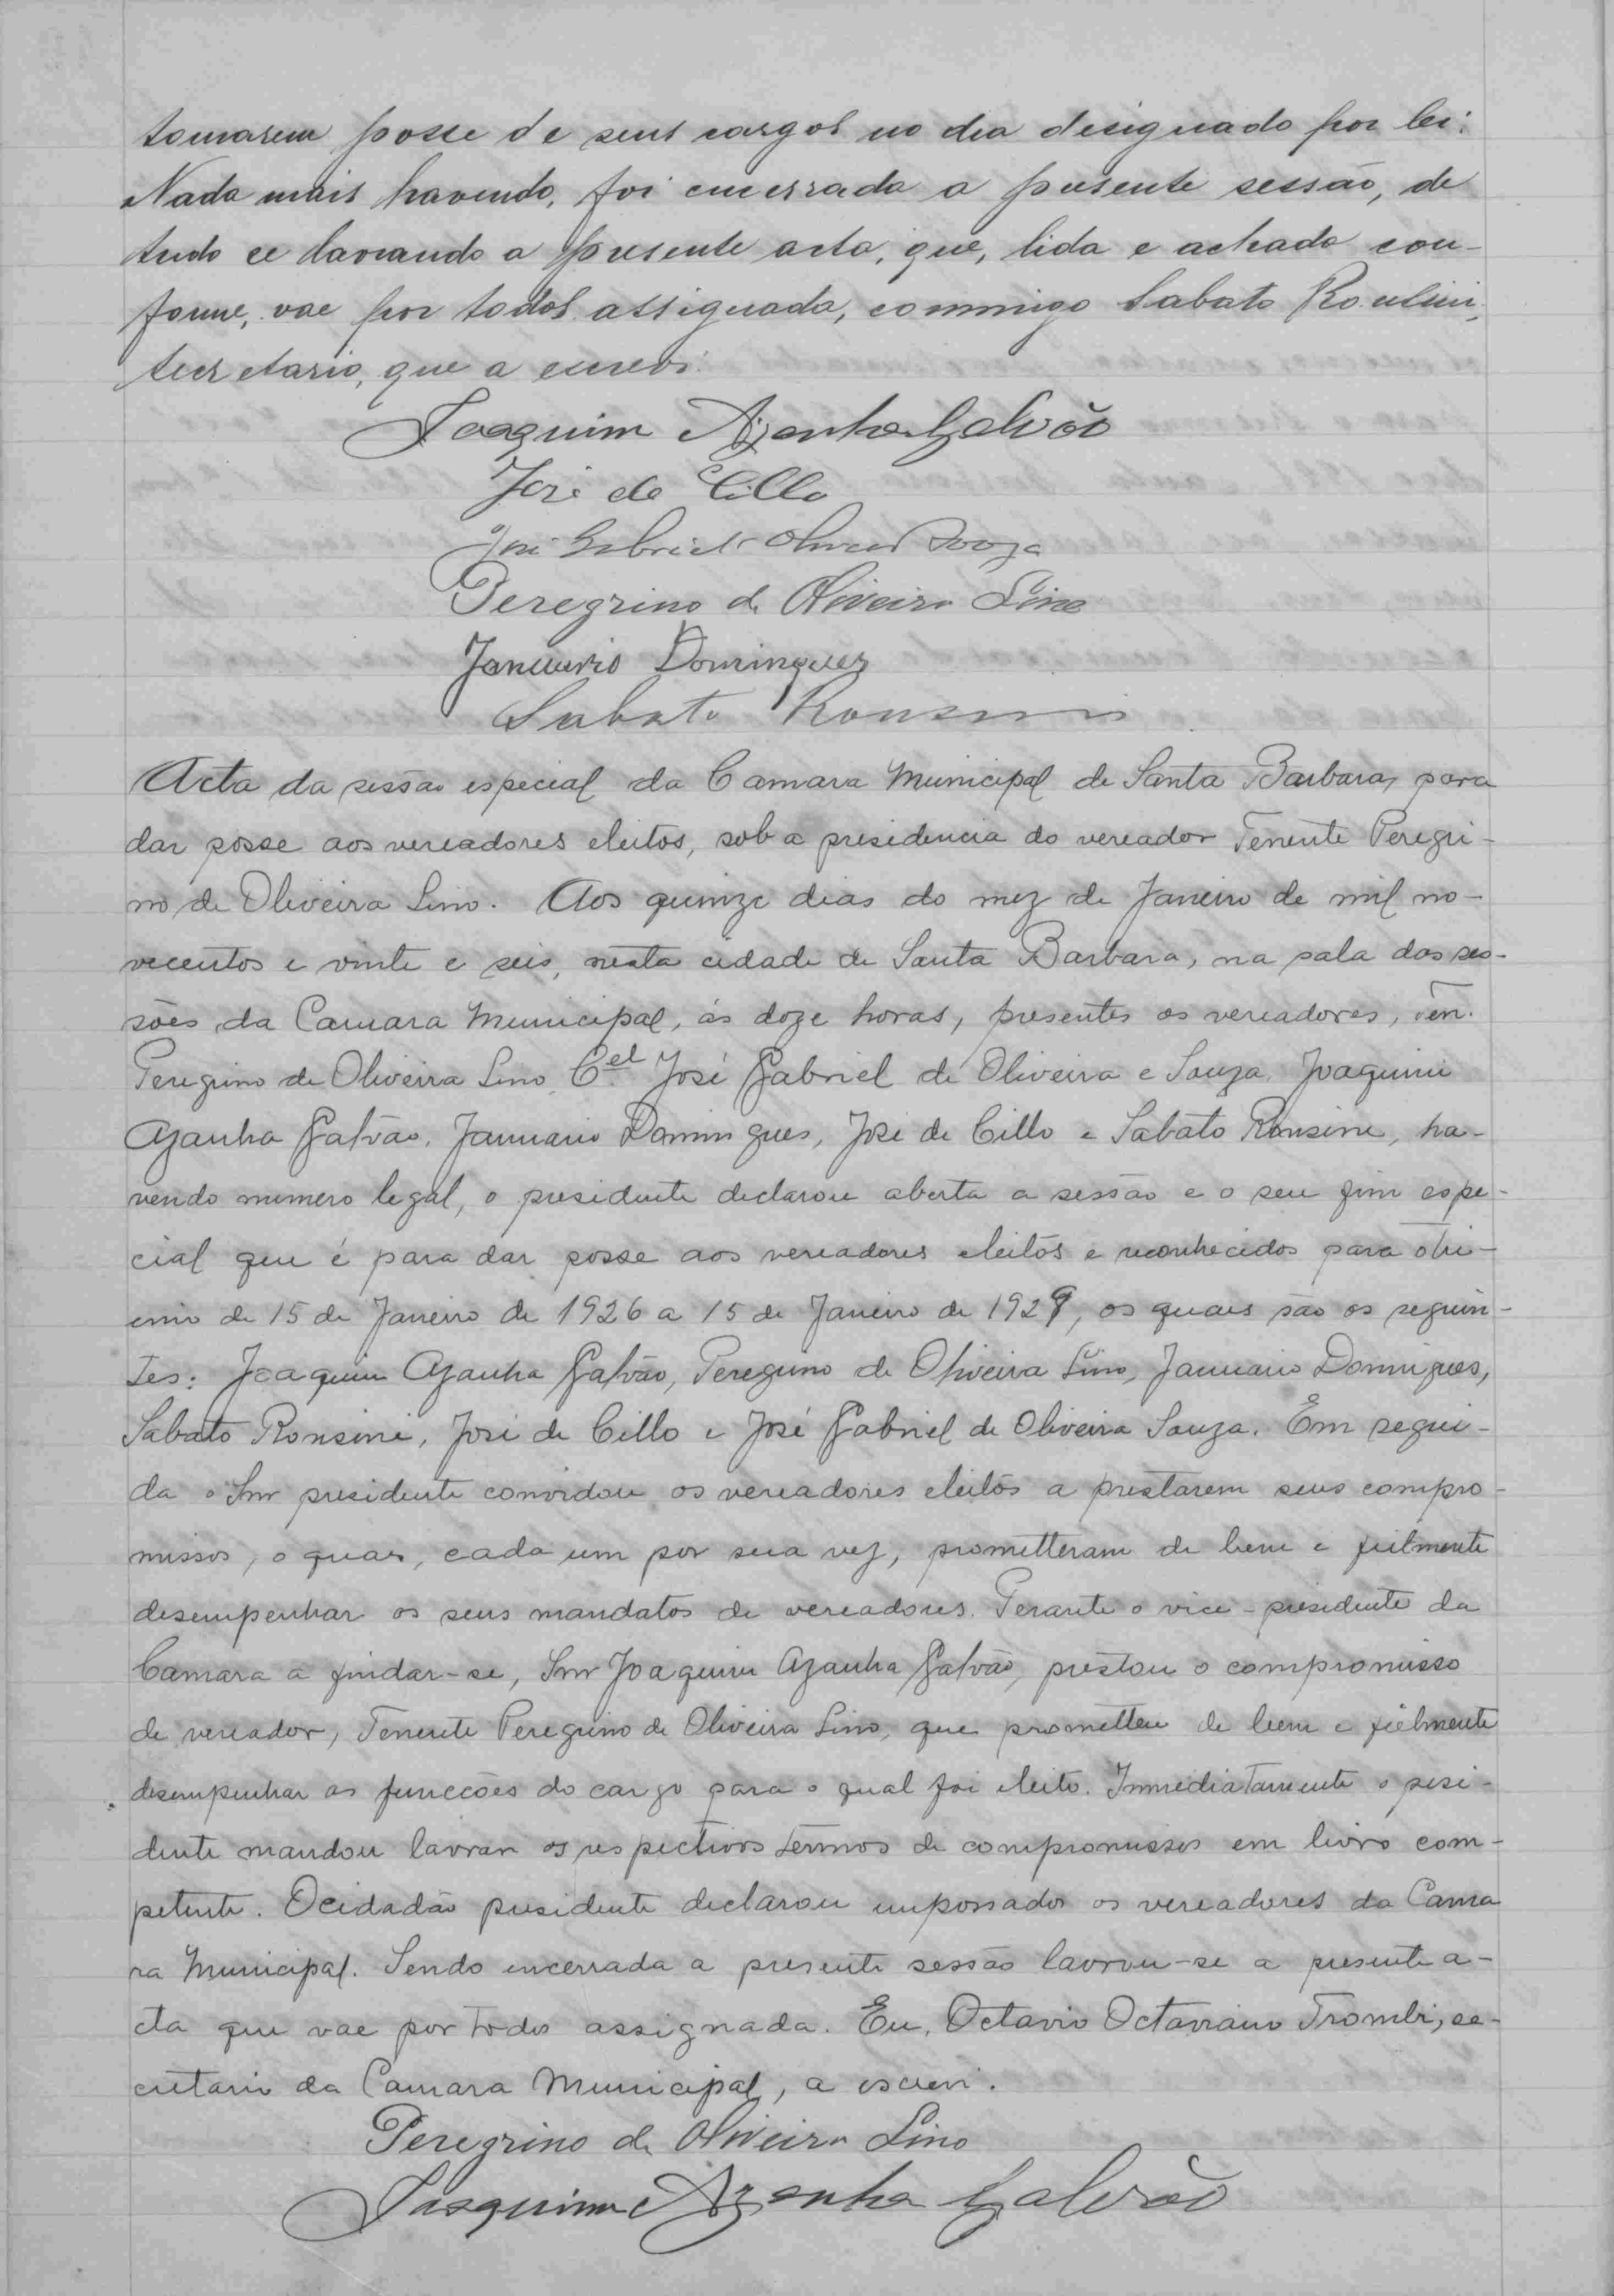 tomarem posse de seus cargos no dia designado por lei.
Nada mais havendo, foi encerrada a presente sessão, de
tudo se lavrando a presente acta, que, lida e achada con-
forme, vae por todos assignada, commigo Sabato Ronsini,
secretario, que a escrevi.
Joaquim Azanha Galvão
José de Cillo
José Gabriel de Oliveira Souza
Peregrino de Oliveira Lino
Januario Domingues
Sabato Ronsini
Acta da sessão especial da Camara Municipal de Santa Barbara, para
dar posse aos vereadores eleitos, sob a presidencia do vereador Tenente Peregri-
no de Oliveira Lino. Aos quinze dias do mez de Janeiro de mil no-
vecentos e vinte e seis, nesta cidade de Santa Barbara, na sala das ses-
sões da Camara Municipal, ás doze horas, presentes os vereadores, Ten.
Peregrino de Oliveira Lino, Cel. José Gabriel de Oliveira e Souza, Joaquim
Azanha Galvão, Januario Domingues, José de Cillo e Sabato Ronsini, ha-
vendo numero legal, o presidente declarou aberta a sessão e o seu fim espe-
cial que é para dar posse aos vereadores eleitos e reconhecidos para o tri-
ennio de 15 de Janeiro de 1926 a 15 de Janeiro de 1929, os quaes são os seguin-
tes: Joaquim Azanha Galvão, Peregrino de Oliveira Lino, Januario Domingues,
Sabato Ronsini, José de Cillo e José Gabriel de Oliveira Souza. Em segui-
da o Snr presidente convidou os vereadores eleitos a prestarem seus compro-
missos, o quaes, cada um por sua vez, prometteram de bem e fielmente
desempenhar os seus mandatos de vereadores. Perante o vice-presidente da
Camara a findar-se, Snr Joaquim Azanha Galvão, prestou o compromisso
de vereador, Tenente Peregrino de Oliveira Lino, que prometteu de bem e fielmente
desempenhar as funcções do cargo para o qual foi eleito. Immediatamente o presi-
dente mandou lavrar os respectivos termos de compromissos em livro com-
petente. O cidadão presidente declarou empossados os vereadores da Cama
ra Municipal. Sendo encerrada a presente sessão lavrou-se a presente a-
cta que vae por todos assignada. Eu, Octavio Octaviano Trombi, se-
cretario da Camara Municipal, a escrevi.
Peregrino de Oliveira Lino
Joaquim Azanha Galvão